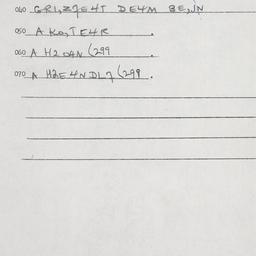 040 GRI,Z7E4T DE4M BE,IN
050 A Ko,TE4R .
060 A H2 OAN (299 .
070 A H2E4NDL7 (299 .